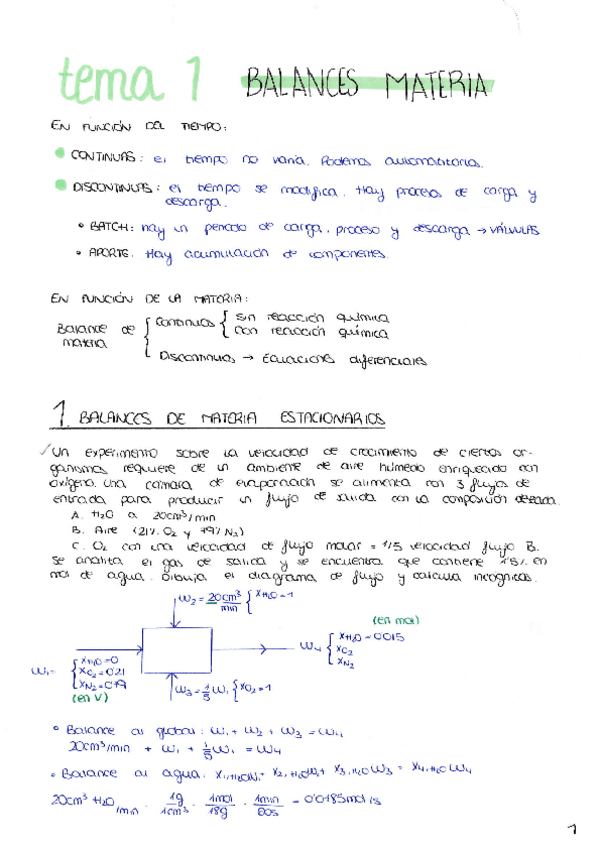 tema 1 BALANCES MATERIA
EN FUNCIÓN DEL TIEMPO:
CONTINUAS: el tiempo no varía. Podemos automatizarlos.
DISCONTINUAS: el tiempo se modifica. Hay proceso de carga y
descarga.
• BATCH: hay un periodo de carga, proceso y descarga → VÁLVULAS
• APORTE: Hay acumulación de componentes.
EN FUNCIÓN DE LA MATERIA:
Balance de materia { Continuos { sin reacción química
con reacción química
Discontinuos → Ecuaciones diferenciales
1. BALANCES DE MATERIA ESTACIONARIOS
✓Un experimento sobre la velocidad de crecimiento de ciertos or-
ganismos requiere de un ambiente de aire húmedo enriquecido con
oxígeno. Una cámara de evaporación se alimenta con 3 flujos de
entrada para producir un flujo de salida con la composición deseada.
A. H₂O a 20cm³/min
B. Aire (21% O₂ y 79% N₂)
C. O₂ con una velocidad de flujo molar = 1/5 velocidad flujo B.
Se analiza el gas de salida y se encuentra que contiene 1'5% en
mol de agua. Dibuja el diagrama de flujo y calcula incógnitas.
W₂ = 20cm³/min { X H₂O = 1
(en mol)
W₄ { X H₂O = 0'015
X O₂
X N₂
W₁ = { X H₂O = 0
X O₂ = 0'21
X N₂ = 0'79
(en V)
W₃ = 1/5 W₁ { X O₂ = 1
• Balance al global: W₁ + W₂ + W₃ = W₄
20cm³/min + W₁ + 1/5 W₁ = W₄
• Balance al agua: X₁,H₂O W₁ + X₂,H₂O W₂ + X₃,H₂O W₃ = X₄,H₂O W₄
20cm³ H₂O /min · 1g/1cm³ · 1mol/18g · 1min/60s = 0'0185mol/s
1